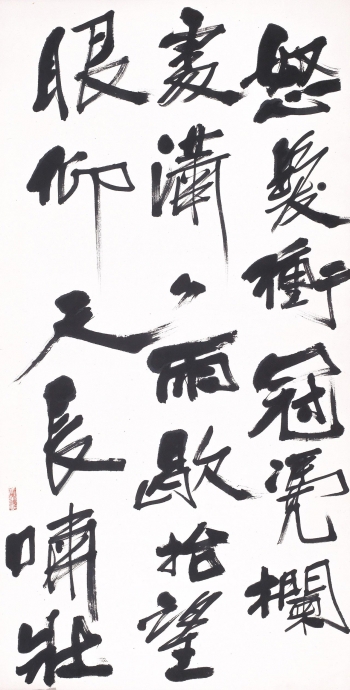 怒髮衝冠凴欄
處瀟々雨歇抬望
眼仰天長嘯壯